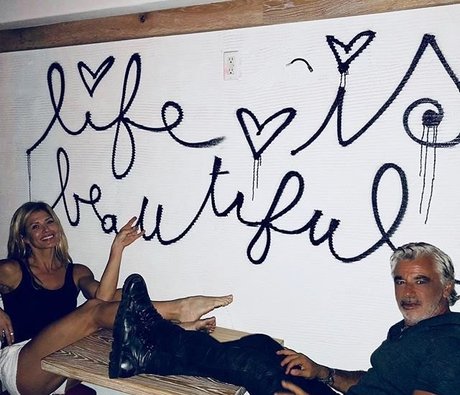 life is
beautiful